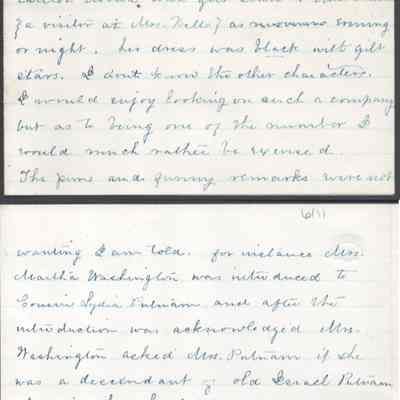 (a visitor at Mrs. Kello) as evening
or night. her dress was black with gilt
stars. I dont know the other characters.
I would enjoy looking on such a company
but as to being one of the number I
would much rather be excused.
The puns and funny remarks were not
6/11
wanting I am told. for instance Mrs.
Martha Washington was introduced to
Cousin Lydia Putnam and after the
introduction was acknowledged Mrs.
Washington asked Mrs. Putnam if she
was a decendant of old Isreal Putnam